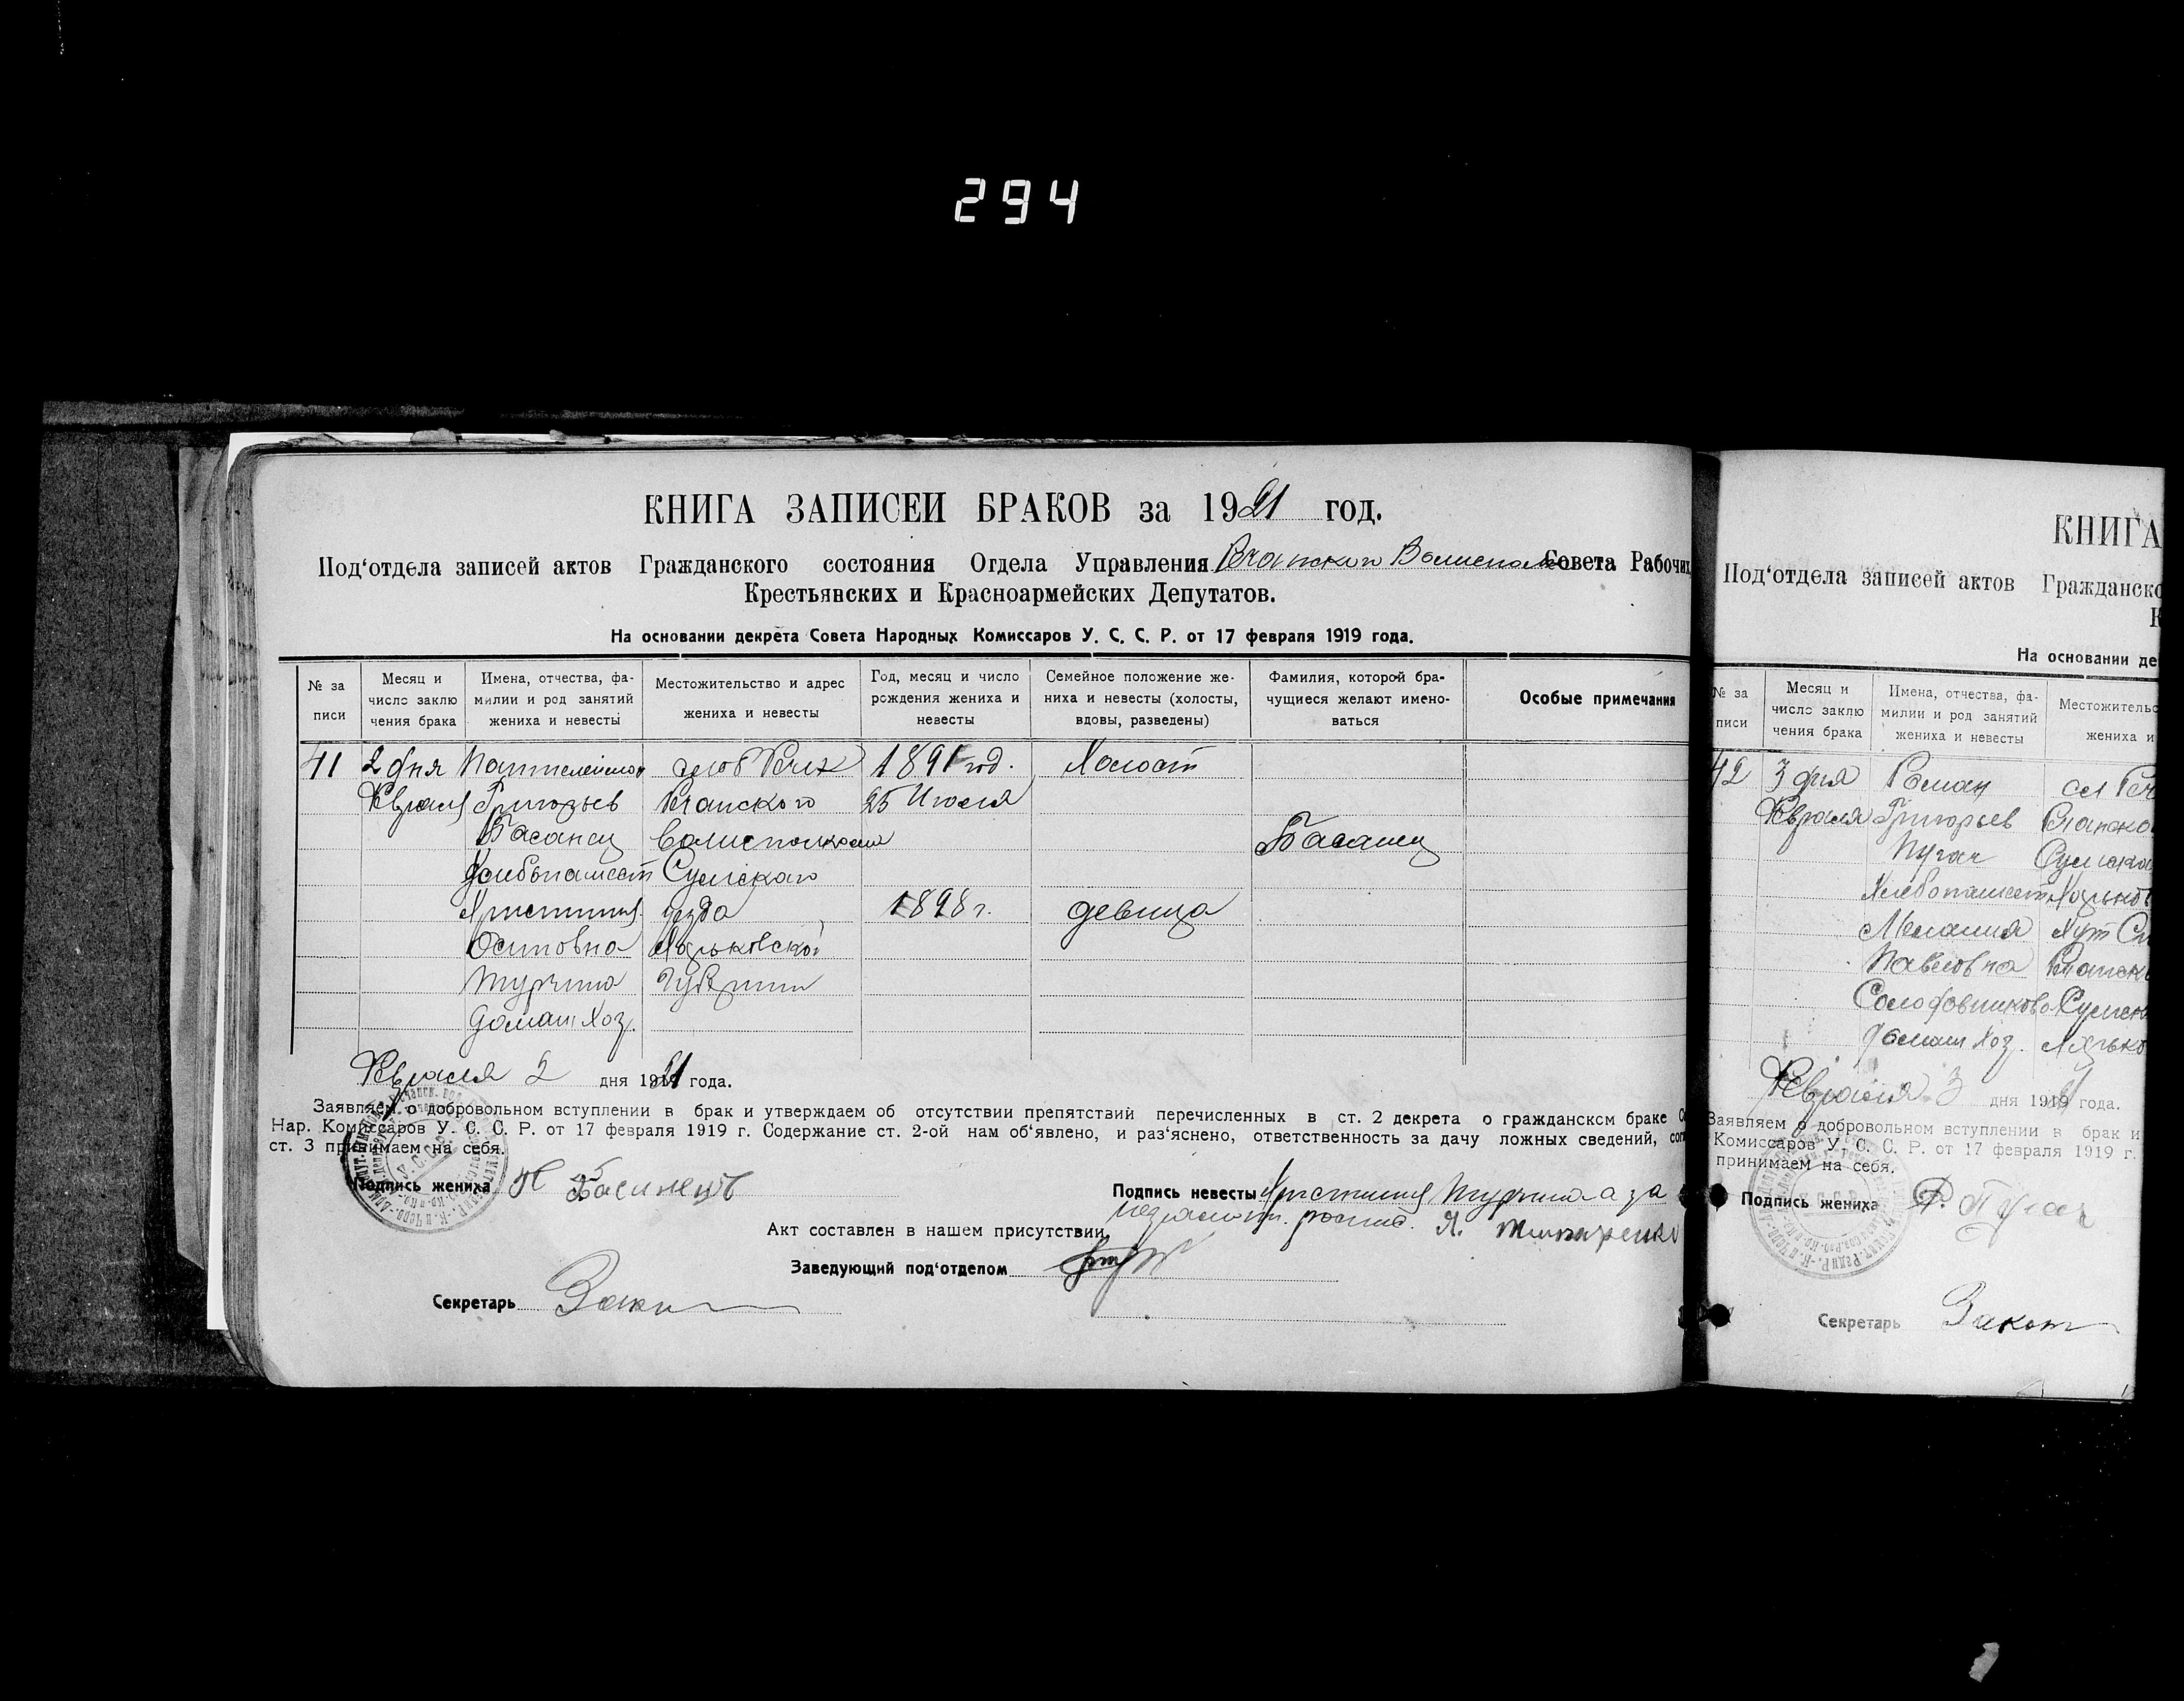 294
КНИГА ЗАПИСЕИ БРАКОВ за 1921 год.
Под‘отдела записей актов Гражданского состояния Отдела Управления Совета Рабочих
Крестьянских и Красноармейских Депутатов.
На основании декрета Совета Народных Комиссаров У. С. С. Р. от 17 февраля 1919 года.
№ за писи
Месяц и число заклю чения брака
Имена, отчества, фа- милии и род занятий жениха и невесты
Местожительство и адрес жениха и невесты
Год, месяц и число рождения жениха и невесты
Семейное положение же- ниха и невесты (холосты, вдовы, разведены)
Фамилия, которой бра- чущиеся желают имено- ваться
Особые примечания
41 2 дня Пантелеймон слоб Речк 1891 год. Холост
Февраля Григорьев Речанского 25 Июля
Басанец Волисполкома Басанец
Хлебопашест Сумского
Христиния уезда 1898 г. девица
Осиповна Харьковской
Турчина Губернии
Домаш Хоз.
Февраля 2 дня 1921 года.
Заявляем о добровольном вступлении в брак и утверждаем об отсутствии препятствий перечисленных в ст. 2 декрета о гражданском браке С
Нар. Комиссаров У. С. С. Р. от 17 февраля 1919 г. Содержание ст. 2-ой нам об‘явлено, и раз‘яснено, ответственность за дачу ложных сведений, сог
ст. 3 принимаем на себя.
Подпись жениха П Басанець
Подпись невесты Христиния Турчина а за
неграмотн. роспис. Я.
Акт составлен в нашем присутствии,
Заведующий под‘отделом
Секретарь
КНИГА
Под‘отдела записей актов Гражданско
К
На основании де
№ за писи
Месяц и число заклю чения брака
Имена, отчества, фа- милии и род занятий жениха и невесты
Местожительс жениха и
42 3 дня Роман сл Реч
Февраля Григорьев Речанско
Пугач Сумско
Хлебопашест Харьков
Мелания Хут
Павловна Речанск
Солодовникова Сумск
Домаш Хоз. Харько
Февраля 3 дня 1921 года.
Заявляем о добровольном вступлении в брак и
Комиссаров У. С. С. Р. от 17 февраля 1919 г.
принимаем на себя.
Подпись жениха Р. Пугач
Секретарь